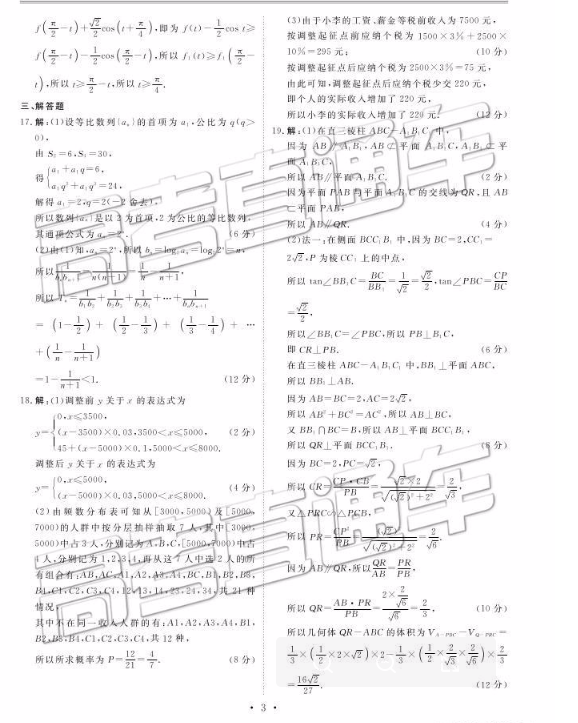 f(π/2−t)+√2/2cos(t+π/4),即为 f(t)−1/2cos t≥
f(π/2−t)−1/2cos(π/2−t),所以 f₁(t)≥f₁(π/2−
t),所以 t≥π/2−t,所以 t≥π/4.
三、解答题
17.解:(1)设等比数列{aₙ}的首项为 a₁,公比为 q(q>
0),
由 S₂=6,S₄=30,
得{a₁+a₁q=6,
a₁q²+a₁q³=24,
解得 a₁=2,q=2(−2 舍去),
所以数列{aₙ}是以 2 为首项,2 为公比的等比数列,
其通项公式为 aₙ=2ⁿ. (6 分)
(2)由(1)知,aₙ=2ⁿ,所以 bₙ=log₂aₙ=log₂2ⁿ=n,
所以1/(bₙbₙ₊₁)=1/(n(n+1))=1/n−1/(n+1),
所以 Tₙ=1/(b₁b₂)+1/(b₂b₃)+1/(b₃b₄)+⋯+1/(bₙbₙ₊₁)
=(1−1/2)+(1/2−1/3)+(1/3−1/4)+⋯
+(1/n−1/(n+1))
=1−1/(n+1)<1. (12 分)
18.解:(1)调整前 y 关于 x 的表达式为
y={0,x≤3500,
(x−3500)×0.03,3500<x≤5000, (2 分)
45+(x−5000)×0.1,5000<x≤8000.
调整后 y 关于 x 的表达式为
y={0,x≤5000,
(x−5000)×0.03,5000<x≤8000. (4 分)
(2)由频数分布表可知从[3000,5000)及[5000,
7000)的人群中按分层抽样抽取 7 人,其中[3000,
5000)中占 3 人,分别记为 A,B,C,[5000,7000)中占
4 人,分别记为 1,2,3,4,再从这 7 人中选 2 人的所
有组合有:AB,AC,A1,A2,A3,A4,BC,B1,B2,B3,
B4,C1,C2,C3,C4,12,13,14,23,24,34,共 21 种
情况,
其中不在同一收入人群的有:A1,A2,A3,A4,B1,
B2,B3,B4,C1,C2,C3,C4,共 12 种,
所以所求概率为 P=12/21=4/7. (8 分)
(3)由于小李的工资、薪金等税前收入为 7500 元,
按调整起征点前应纳个税为 1500×3%+2500×
10%=295 元; (10 分)
按调整起征点后应纳个税为 2500×3%=75 元,
由此可知,调整起征点后应纳个税少交 220 元,
即个人的实际收入增加了 220 元,
所以小李的实际收入增加了 220 元. (12 分)
19.解:(1)在直三棱柱 ABC−A₁B₁C₁ 中,
因为 AB∥A₁B₁,AB⊄平面 A₁B₁C,A₁B₁⊂平
面 A₁B₁C,
所以 AB∥平面 A₁B₁C. (2 分)
因为平面 PAB 与平面 A₁B₁C 的交线为 QR,且 AB
⊂平面 PAB,
所以 AB∥QR. (4 分)
(2)法一:在侧面 BCC₁B₁ 中,因为 BC=2,CC₁=
2√2,P 为棱 CC₁ 上的中点,
所以 tan∠BB₁C=BC/BB₁=1/√2=√2/2,tan∠PBC=CP/BC
=√2/2,
所以∠BB₁C=∠PBC,所以 PB⊥B₁C,
即 CR⊥PB. (6 分)
在直三棱柱 ABC−A₁B₁C₁ 中,BB₁⊥平面 ABC,
所以 BB₁⊥AB.
因为 AB=BC=2,AC=2√2,
所以 AB²+BC²=AC²,所以 AB⊥BC,
又 BB₁∩BC=B,所以 AB⊥平面 BCC₁B₁,
所以 QR⊥平面 BCC₁B₁. (8 分)
因为 BC=2,PC=√2,
所以 CR=CP·CB/PB=√2×2/√((√2)²+2²)=2/√3,
又△PRC∽△PCB,
所以 PR=CP²/PB=(√2)²/√((√2)²+2²)=2/√6.
因为 AB∥QR,所以QR/AB=PR/PB,
所以 QR=AB·PR/PB=(2×2/√6)/√6=2/3, (10 分)
所以几何体 QR−ABC 的体积为 V_A−PBC−V_Q−PRC=
1/3×(1/2×2×√2)×2−1/3×(1/2×2/√3×2/√6)×2/3
=16√2/27. (12 分)
• 3 •
高考直通车
高考直通车
高考直通车